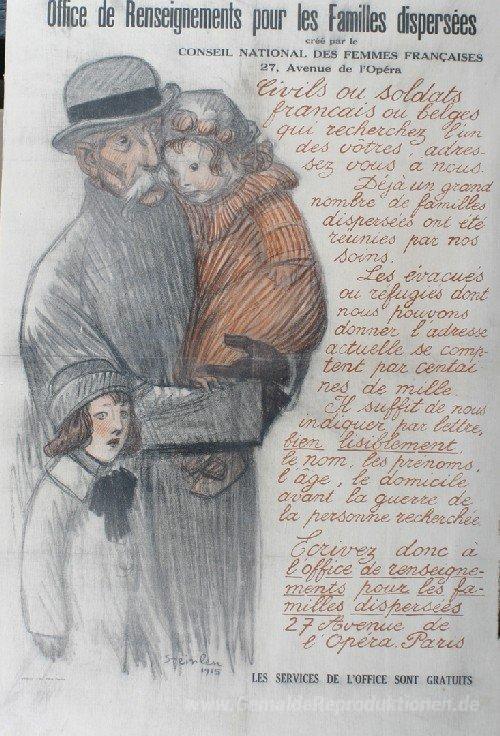 Office de Renseignements pour les Familles dispersées
créé par le
CONSEIL NATIONAL DES FEMMES FRANÇAISES
27, Avenue de l'Opéra
Civils ou soldats
francais ou belges
qui recherchez l'un
des vôtres, adres-
sez vous a nous.
Déjà un grand
nombre de familles
dispersées ont été
réunies par nos
soins.
Les évacués
ou réfugiés dont
nous pouvons
donner l'adresse
actuelle se comp-
tent par centai
nes de mille.
Il suffit de nous
indiquer par lettre,
bien lisiblement,
le nom, les prénoms,
l'âge, le domicile
avant la guerre de
la personne recherchée.
Ecrivez donc à
l'office de renseigne-
ments pour les fa-
milles dispersées
27 Avenue de
l'Opéra. Paris
Steinlen
1915
LES SERVICES DE L'OFFICE SONT GRATUITS
www.GemaldeReproduktionen.de